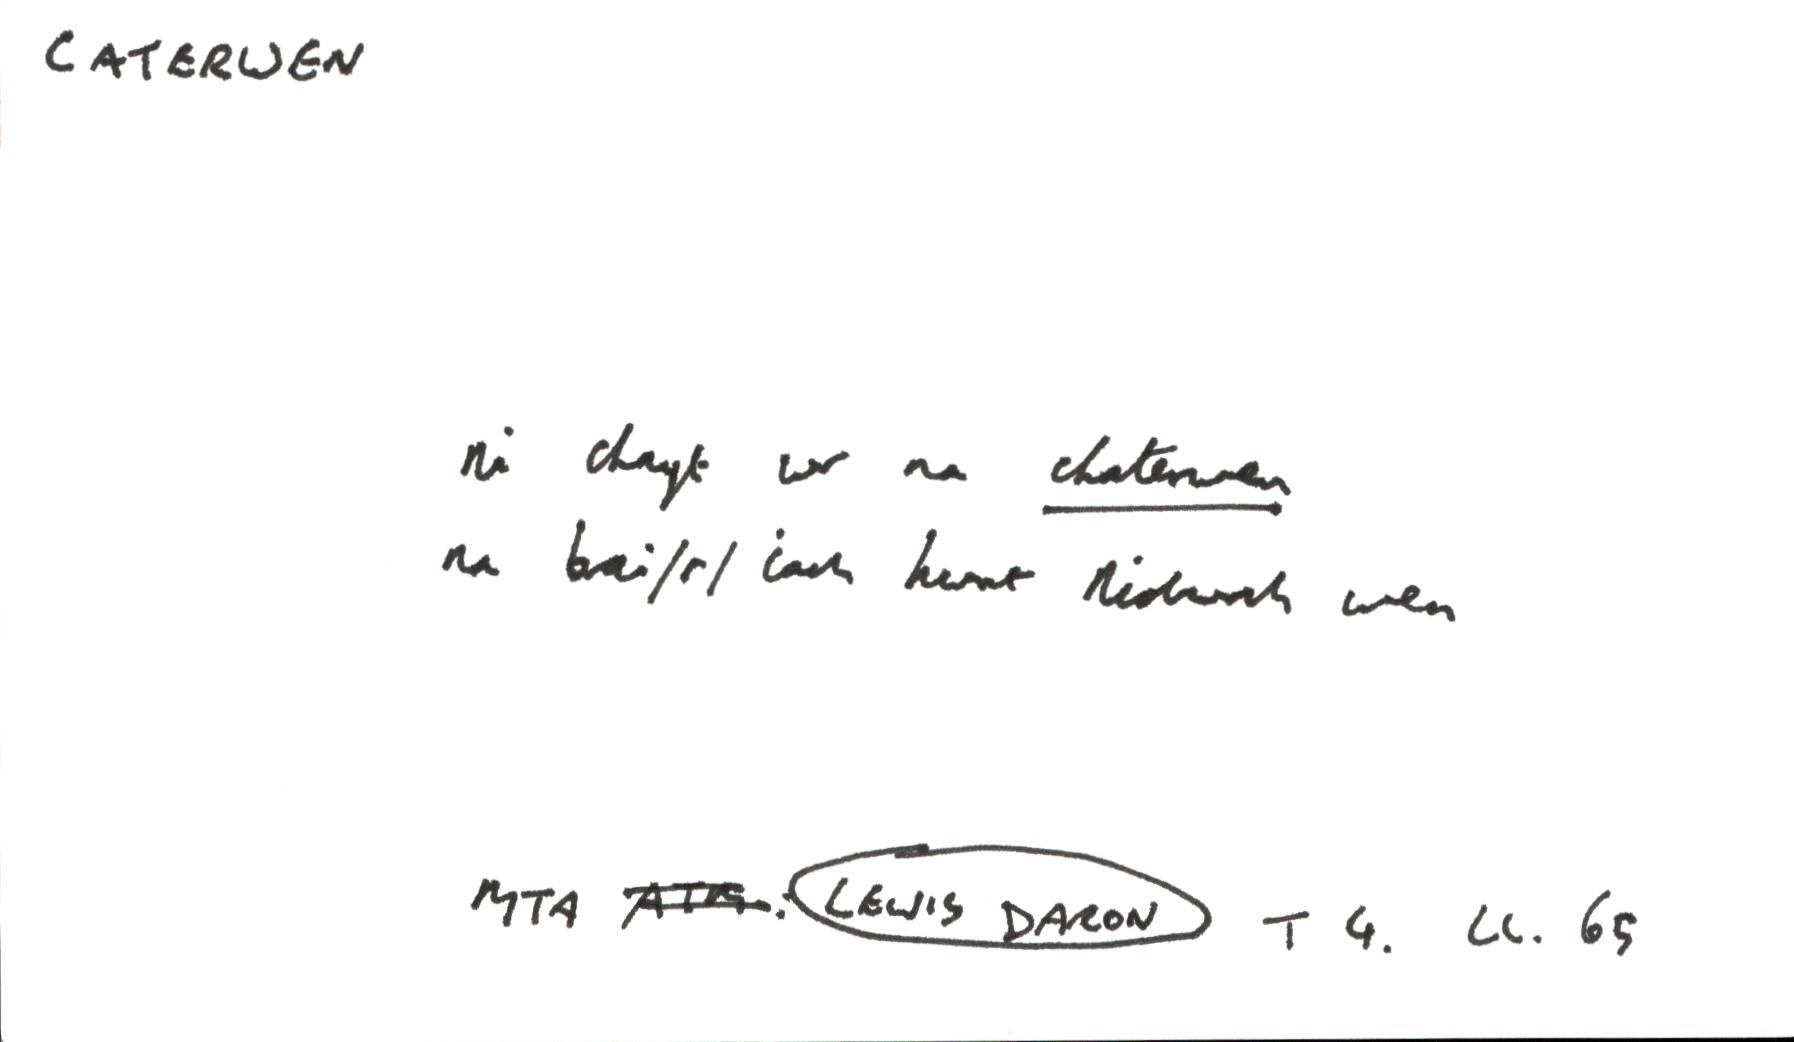 CATERWEN
ni chayt wr na chaterwen
na bai/r/ iach hwnt wen
MTA LEWIS DARON T 4. LL. 65